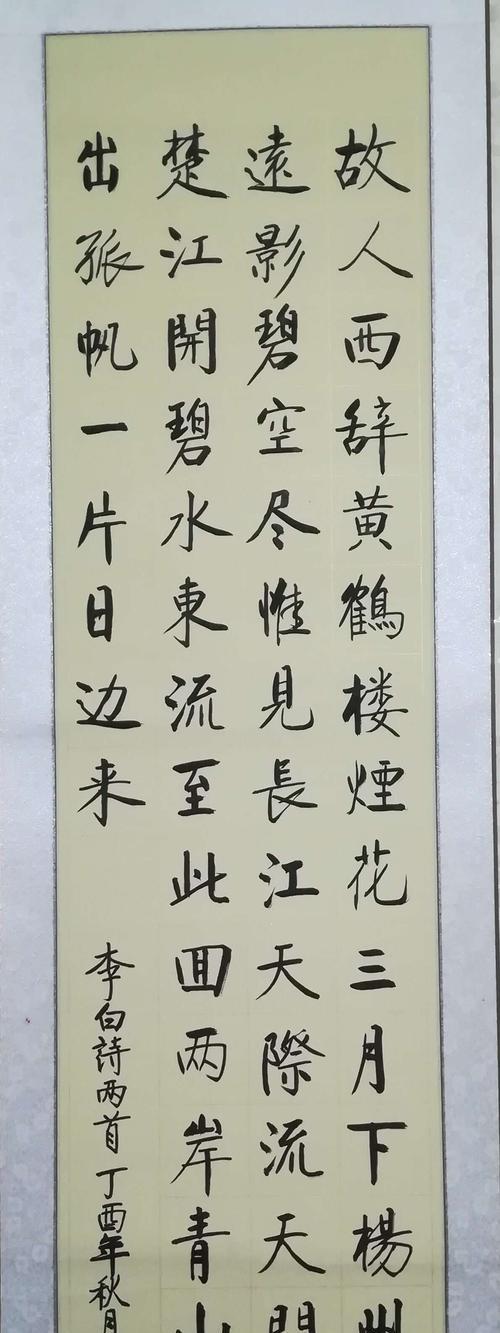 故人西辞黄鶴楼煙花三月下楊州
遠影碧空尽惟見長江天際流天門
楚江開碧水東流至此囬两岸青山
出孤帆一片日边来
李白詩两首丁酉年秋月